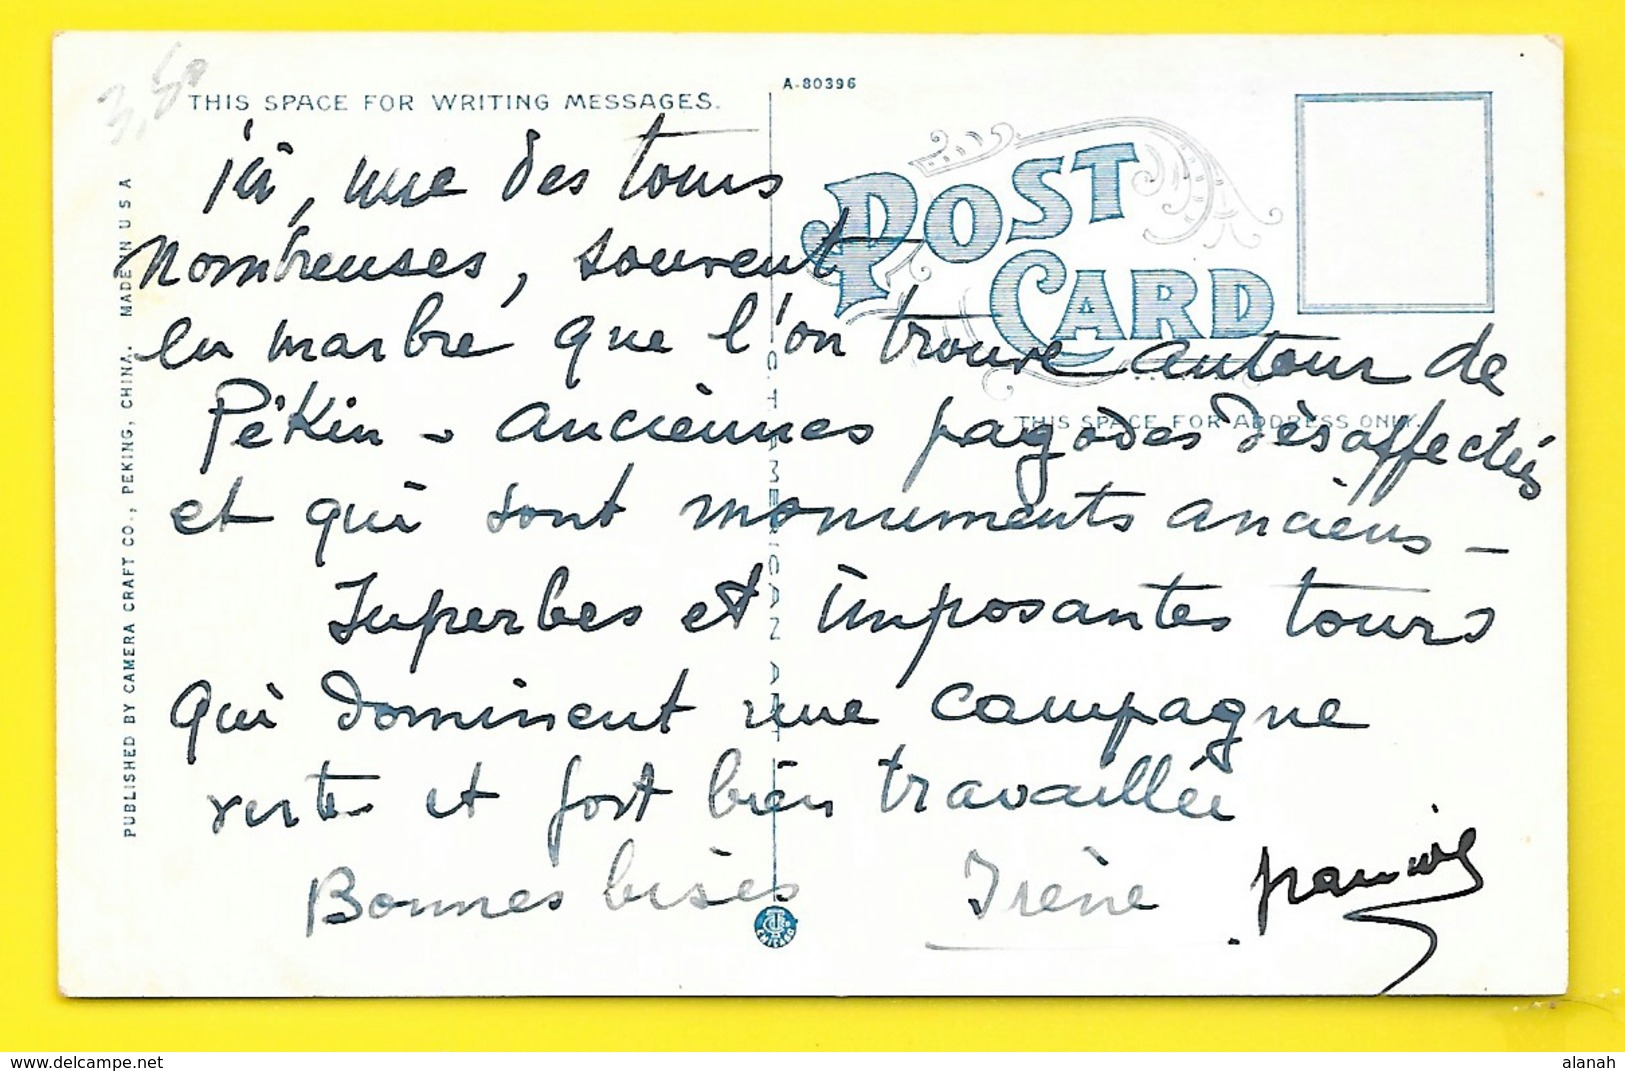 3,50
THIS SPACE FOR WRITING MESSAGES.
A-80396
POST CARD
THIS SPACE FOR ADDRESS ONLY.
ici, une des tours
nombreuses, souvent
en marbre que l'on trouve autour de
Pékin - anciennes pagodes désaffectées
et qui sont monuments anciens -
Superbes et imposantes tours
qui dominent une campagne
verte et fort bien travaillée
Bonnes bises Irène
PUBLISHED BY CAMERA CRAFT CO., PEKING, CHINA. MADE IN U S A
C. T. AMERICAN ART
CHICAGO
delcampe.net
alanah